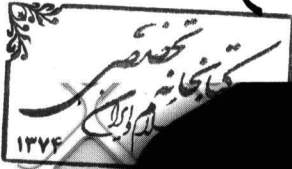 کتابخانه تخصصی
اسلام و ایران
۱۳۷۴